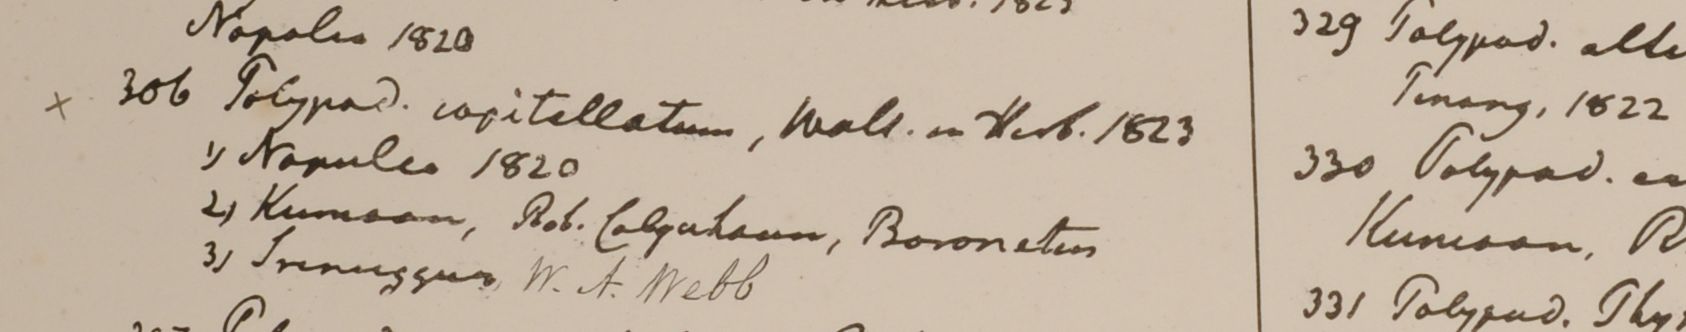 in Herb. 1823
Napalia 1820
× 306 Polypod. capitellatum, Wall. in Herb. 1823
1) Napalia 1820
2) Kumaon, Rob. Colquhoun, Baronetus
3) Srinuggur, W. A. Webb
329 Polypod. alte
Penang, 1822
330 Polypod.
Kumaon, R
331 Polypod. Thy